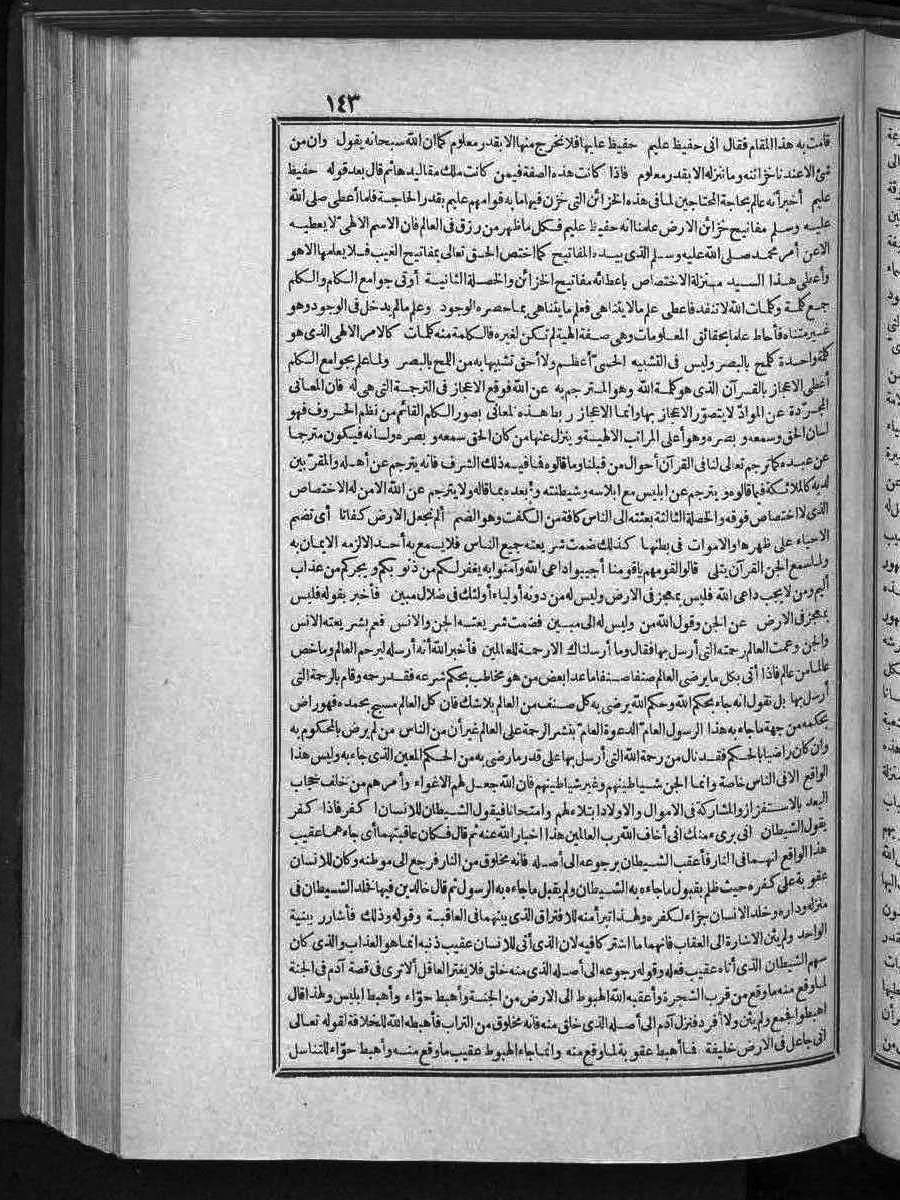 ١٤٣
قامت به هذا المقام فقال انى حفيظ عليم حفيظ عليها فلا نخرج منها الا بقدر معلوم كما ان الله سبحانه يقول وان من
شئ الا عندنا خزائنه وما ننزله الا بقدر معلوم فاذا كانت هذه الصفة فيمن كانت ملك مقاليدها ثم قال بعد قوله حفيظ
عليم أخبر أنه عالم بحاجة المحتاجين لما فى هذه الخزائن التى خزن فيها ما به قوامهم عليم بقدر الحاجة فلما أعطى صلى الله
عليه وسلم مفاتيح خزائن الارض علمنا انه حفيظ عليم فكل ما ظهر من رزق فى العالم فان الاسم الالهى لا يعطيه
الا عن أمر محمد صلى الله عليه وسلم الذى بيده المفاتيح كما اختص الحق تعالى بمفاتيح الغيب فلا يعلمها الا هو
وأعطى هذا السيد منزلة الاختصاص باعطائه مفاتيح الخزائن والخصلة الثانية أوتى جوامع الكلم والكلم
جمع كلمة وكلمات الله لا تنفد فاعطى علم ما لا يتناهى فعلم ما يتناهى بما حصره الوجود وعلم ما لم يدخل فى الوجود وهو
غير متناه فأحاط علما بحقائق المعلومات وهى صفة الهية لم تكن لغيره فالكلمة منه كلمات كالامر الالهى الذى هو
كلمة واحدة كلمح بالبصر وليس فى التشبيه الحسى أعظم ولا أحق تشبيها به من اللمح بالبصر ولما علم بجوامع الكلم
أعطى الاعجاز بالقرآن الذى هو كلمة الله وهو المترجم به عن الله فوقع الاعجاز فى الترجمة التى هى له فان المعانى
المجردة عن المواد لا يتصور الاعجاز بها وانما الاعجاز ربط هذه المعانى بصور الكلم القائم من نظم الحروف فهو
لسان الحق وسمعه وبصره وهو أعلى المراتب الالهية وينزل عنها من كان الحق سمعه وبصره ولسانه فيكون مترجما
عن عبده كما ترجم تعالى لنا فى القرآن أحوال من قبلنا وما قالوه فما فيه ذلك الشرف فانه يترجم عن أهله والمقربين
لديه كالملائكة فيما قالوه ويترجم عن ابليس مع ابلاسه وشيطنته وبعده بما قاله ولا يترجم عن الله الا من له الاختصاص
الذى لا اختصاص فوقه والخصلة الثالثة بعثته الى الناس كافة من الكفت وهو الضم ألم نجعل الارض كفاتا أى تضم
الاحياء على ظهرها والاموات فى بطنها كذلك ضمت شريعته جميع الناس فلا يسمع به أحد الا لزمه الايمان به
ولما سمع الجن القرآن يتلى قالوا لقومهم يا قومنا أجيبوا داعى الله وآمنوا به يغفر لكم من ذنوبكم ويجركم من عذاب
أليم ومن لا يجب داعى الله فليس بمعجز فى الارض وليس له من دونه أولياء أولئك فى ضلال مبين فأخبر بقوله فليس
بمعجز فى الارض عن الجن وقول الله من وليس له الى مبين فضمت شريعته الجن والانس فعم بشريعته الانس
والجن وعمت العالم رحمته التى أرسل بها فقال وما أرسلناك الا رحمة للعالمين فأخبر الله أنه أرسله ليرحم العالم وما خص
عالما من عالم فاذا أتى بكل ما يرضى العالم صنفا صنفا ما عدا بعض من هو مخاطب بحكم شرعه فقد رحمه وقام بالرحمة التى
أرسل بها بل نقول انه جاء بحكم الله وحكم الله يرضى به كل صنف من العالم بلا شك فان كل العالم مسبح بحمده فهو راض
بحكمه من جهة ما جاء به هذا الرسول العام الدعوة العام بنشر الرحمة على العالم غير أن من الناس من لم يرض بالمحكوم به
وان كان راضيا بالحكم فقد نال من رحمة الله التى أرسل بها على قدر ما رضى به من الحكم المعين الذى جاء به وليس هذا
الواقع الا فى الناس خاصة وانما الجن شياطينهم وغير شياطينهم فان الله جعل لهم الاغواء وأمرهم من خلف حجاب
البعد بالاستفزاز والمشاركة فى الاموال والاولاد ابتلاء لهم وامتحانا فيقول الشيطان للانسان اكفر فاذا كفر
يقول الشيطان انى برىء منك انى أخاف الله رب العالمين هذا اخبار الله عنه ثم قال فكان عاقبتهما أى جاء عما عقيب
هذا الواقع انهما فى النار فأعقب الشيطان برجوعه الى أصله فانه مخلوق من النار فرجع الى موطنه وكان للانسان
عقوبة على كفره حيث ظلم بقبول ما جاءه به الشيطان ولم يقبل ما جاءه به الرسول ثم قال خالدين فيها خلد الشيطان فى
منزله وداره وخلد الانسان جزاء لكفره ولهذا تبرأ منه للافتراق الذى بينهما فى العاقبة وقوله وذلك فأشار ببنية
الواحد ولم يثن الاشارة الى العقاب فانهما ما اشتركا فيه لان الذى أتى للانسان عقيب ذنبه انما هو العذاب والذى كان
سهم الشيطان الذى أتاه عقيب فعله وقوله رجوعه الى أصله الذى منه خلق فلا يغتر العاقل ألا ترى فى قصة آدم فى الجنة
لما وقع منه ما وقع من قرب الشجرة وأعقبه الله الهبوط الى الارض من الجنة وأهبط حواء وأهبط ابليس ولهذا قال
اهبطوا بجمع ولم يثن ولا أفرد فنزل آدم الى أصله الذى خلق منه فانه مخلوق من التراب فأهبطه الله للخلافة لقوله تعالى
انى جاعل فى الارض خليفة فما أهبط عقوبة لما وقع منه وانما جاء الهبوط عقيب ما وقع منه وأهبط حواء للتناسل